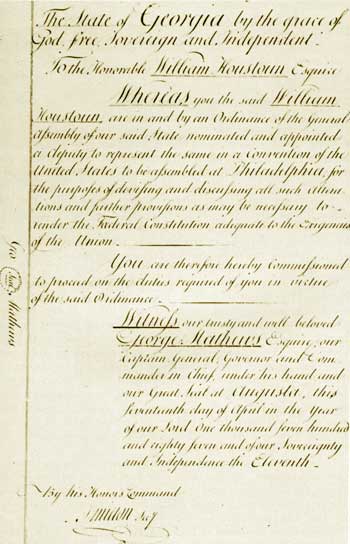 The State of Georgia by the grace of
God, free, Sovereign and Independent.
To the Honorable William Houstoun Esquire
Whereas you the said William
Houstoun, are in and by an Ordinance of the General
Assembly of our said State nominated and appointed
a deputy to represent the same in a Convention of the
United States to be assembled at Philadelphia, for
the purposes of devising and discussing all such Altera
tions and farther provisions as may be necessary to
render the Federal Constitution adequate to the Exigencies
of the Union.
You are therefore hereby Commissioned
to proceed on the duties required of you in virtue
of the said Ordinance.
Witness our trusty and well beloved
George Mathews Esquire, our
Captain General, Governor and Com
mander in Chief, under his hand and
our Great Seal at Augusta, this
Seventeenth day of April in the Year
of our Lord One thousand seven hundred
and eighty seven and of our Sovereignty
and Independence the Eleventh.
By his Honors Command
J Milton Secy
Geo Mathews